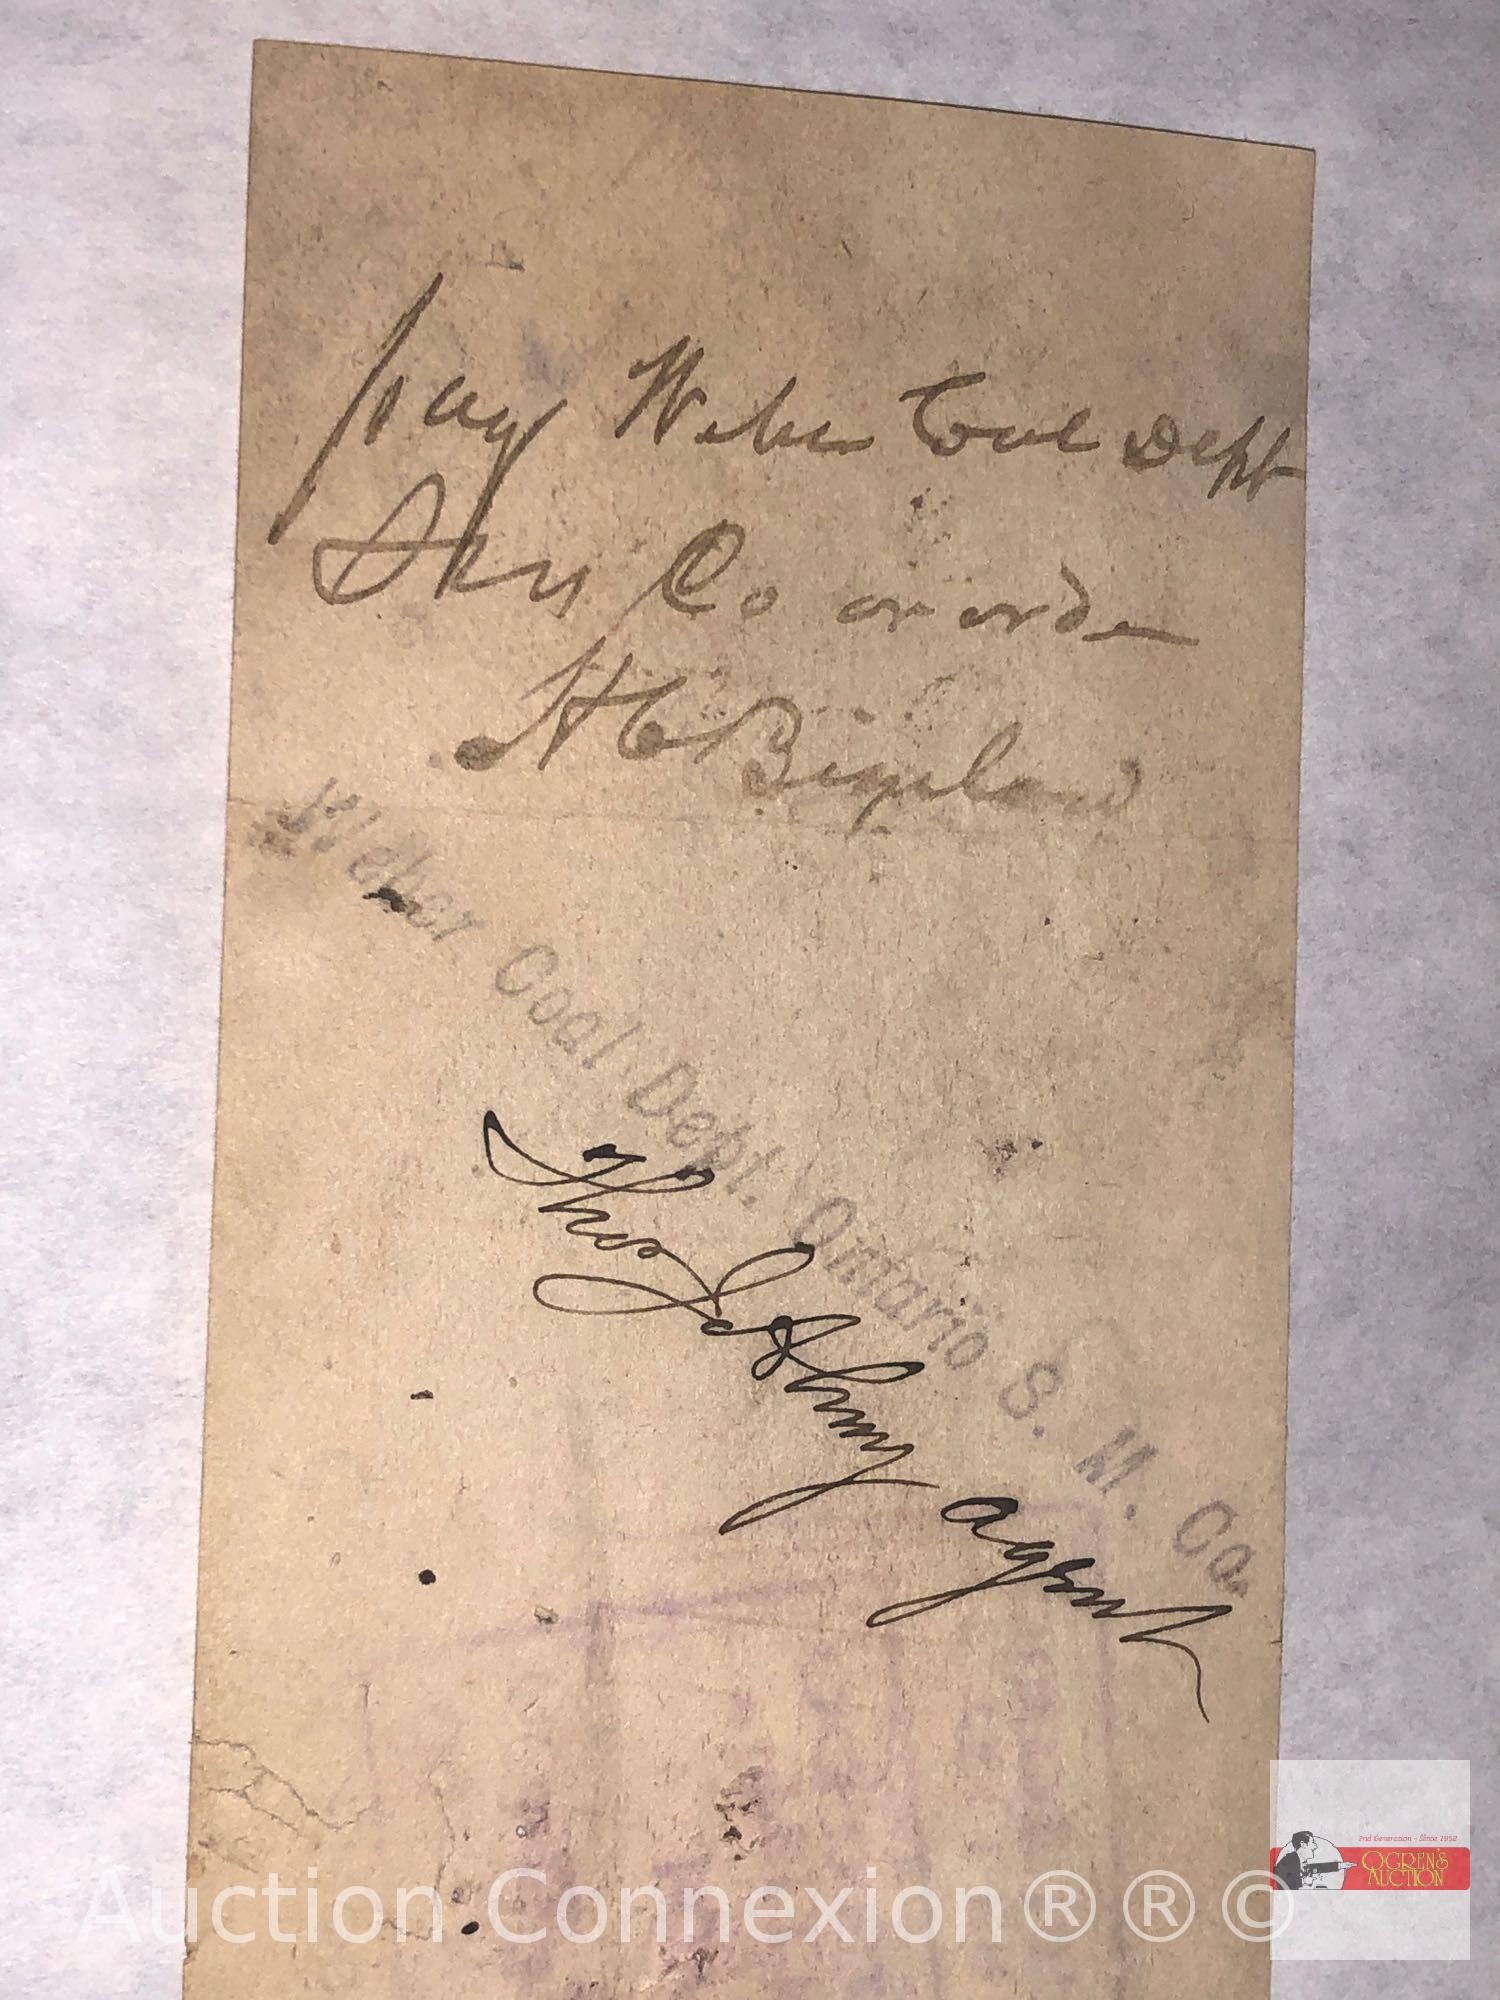 Pay Weber Coal Dept
Co or order
H C Bigelow
Weber Coal Dept. Ontario S. M. Co.
Thos agent
Auction Connexion®®©
2nd Generation - Since 1952
OGREN'S
AUCTION